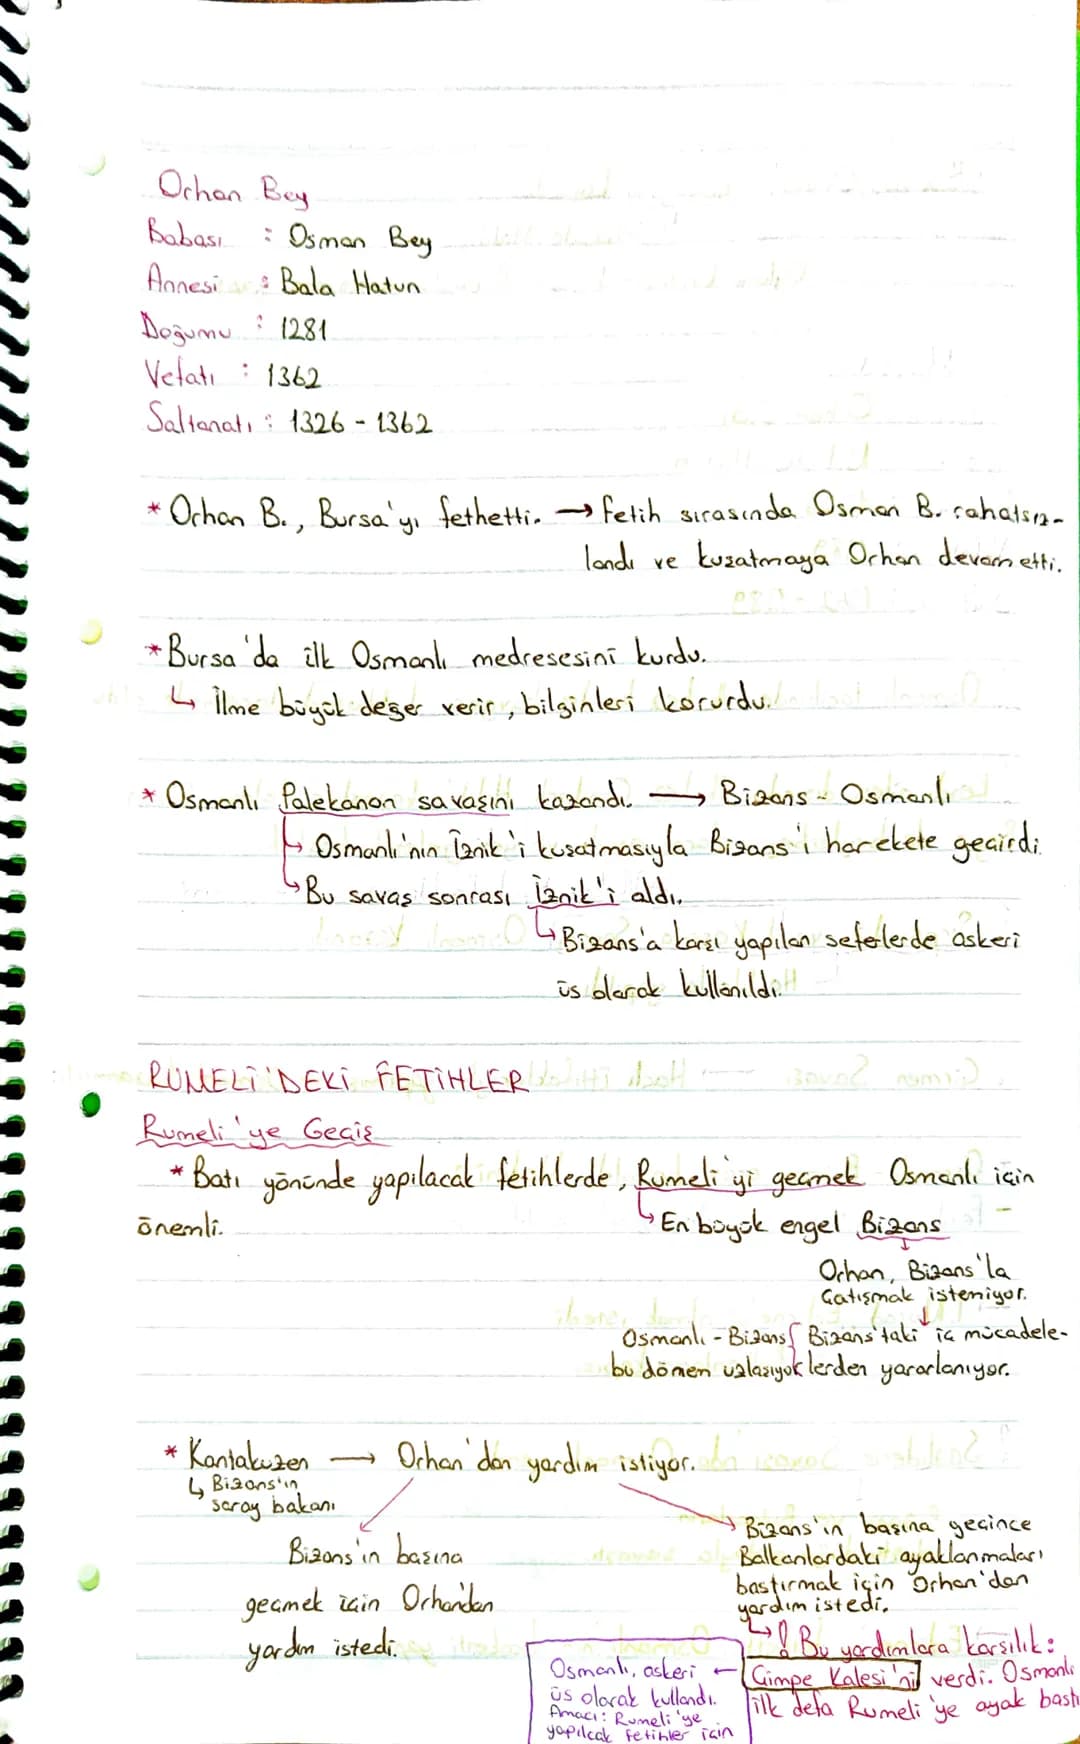 Orhan Bey
Babası : Osman Bey
Annesi : Bala Hatun
Doğumu : 1281
Vefatı : 1362
Saltanatı : 1326 - 1362
* Orhan B., Bursa'yı fethetti. → Fetih sırasında Osman B. rahatsız-
landı ve kuşatmaya Orhan devam etti.
* Bursa'da ilk Osmanlı medresesini kurdu.
↳ İlme büyük değer verir, bilginleri korurdu.
* Osmanlı Palekanon savaşını kazandı. → Bizans - Osmanlı
↳ Osmanlı'nın İznik'i kuşatmasıyla Bizans'ı harekete geçirdi.
↳ Bu savaş sonrası İznik'i aldı.
↳ Bizans'a karşı yapılan seferlerde askeri
üs olarak kullanıldı.
RUMELİ'DEKİ FETİHLER
Rumeli'ye Geçiş
* Batı yönünde yapılacak fetihlerde, Rumeli'yi geçmek Osmanlı için
önemli.
↳ En büyük engel Bizans
Orhan, Bizans'la
Çatışmak istemiyor.
Osmanlı - Bizans Bizans'taki iç mücadele-
bu dönem uzlaşıyok lerden yararlanıyor.
* Kantakuzen → Orhan'dan yardım istiyor.
↳ Bizans'ın
saray bakanı
Bizans'ın başına
geçmek için Orhan'dan
yardım istedi.
→ Bizans'ın başına geçince
Balkanlardaki ayaklanmaları
bastırmak için Orhan'dan
yardım istedi.
↳ ! Bu yardımlara karşılık:
Çimpe Kalesi'ni verdi. Osmanlı
ilk defa Rumeli'ye ayak bastı
Osmanlı, askeri ←
üs olarak kullandı.
Amacı: Rumeli'ye
yapılcak fetihler için